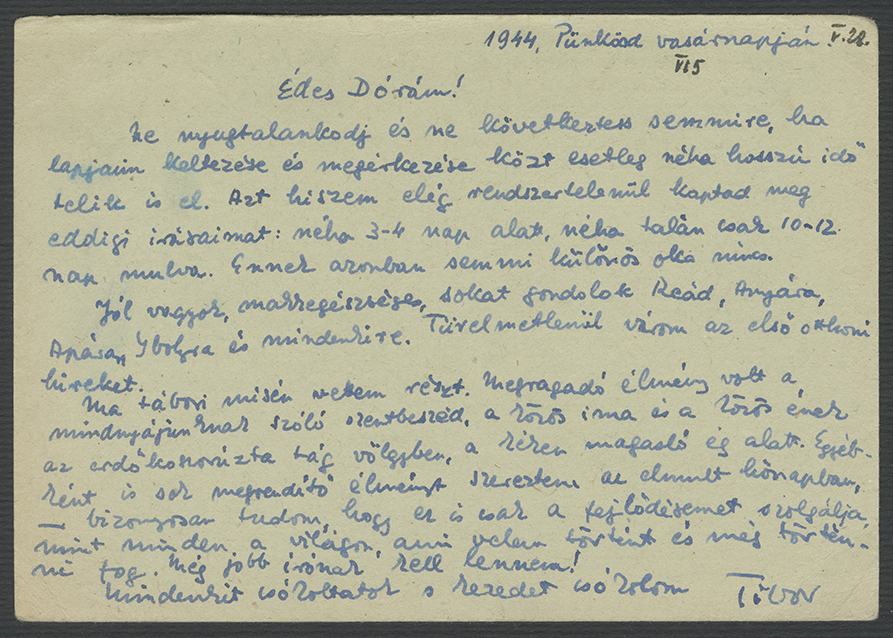 1944, Pünkösd vasárnapján. V. 28.
VI 5
Édes Dórám!
Ne nyugtalankodj és ne következtess semmire, ha
lapjaim keltezése és megérkezése közt esetleg néha hosszú idő
telik is el. Azt hiszem elég rendszertelenül kaptad meg
eddigi írásaimat: néha 3-4 nap alatt, néha talán csak 10-12
nap mulva. Ennek azonban semmi különös oka nincs.
Jól vagyok, makkegészséges, sokat gondolok Reád, Anyára,
Apára, Ibolyra és mindenkire. Türelmetlenül várom az első otthoni
híreket.
Ma tábori misén vettem részt. Megragadó élmény volt a
mindnyájunknak szóló szentbeszéd, a közös ima és a közös ének
az erdőkoszorúzta tág völgyben, a kéken magasló ég alatt. Egyéb-
ként is sok megrendítő élményt szereztem az elmult hónapban,
– bizonyosan tudom, hogy ez is csak a fejlődésemet szolgálja,
mint minden a világon, ami velem történt és még történ-
ni fog. Még jobb írónak kell lennem!
Mindenkit csókoltatok s kezedet csókolom Tibor